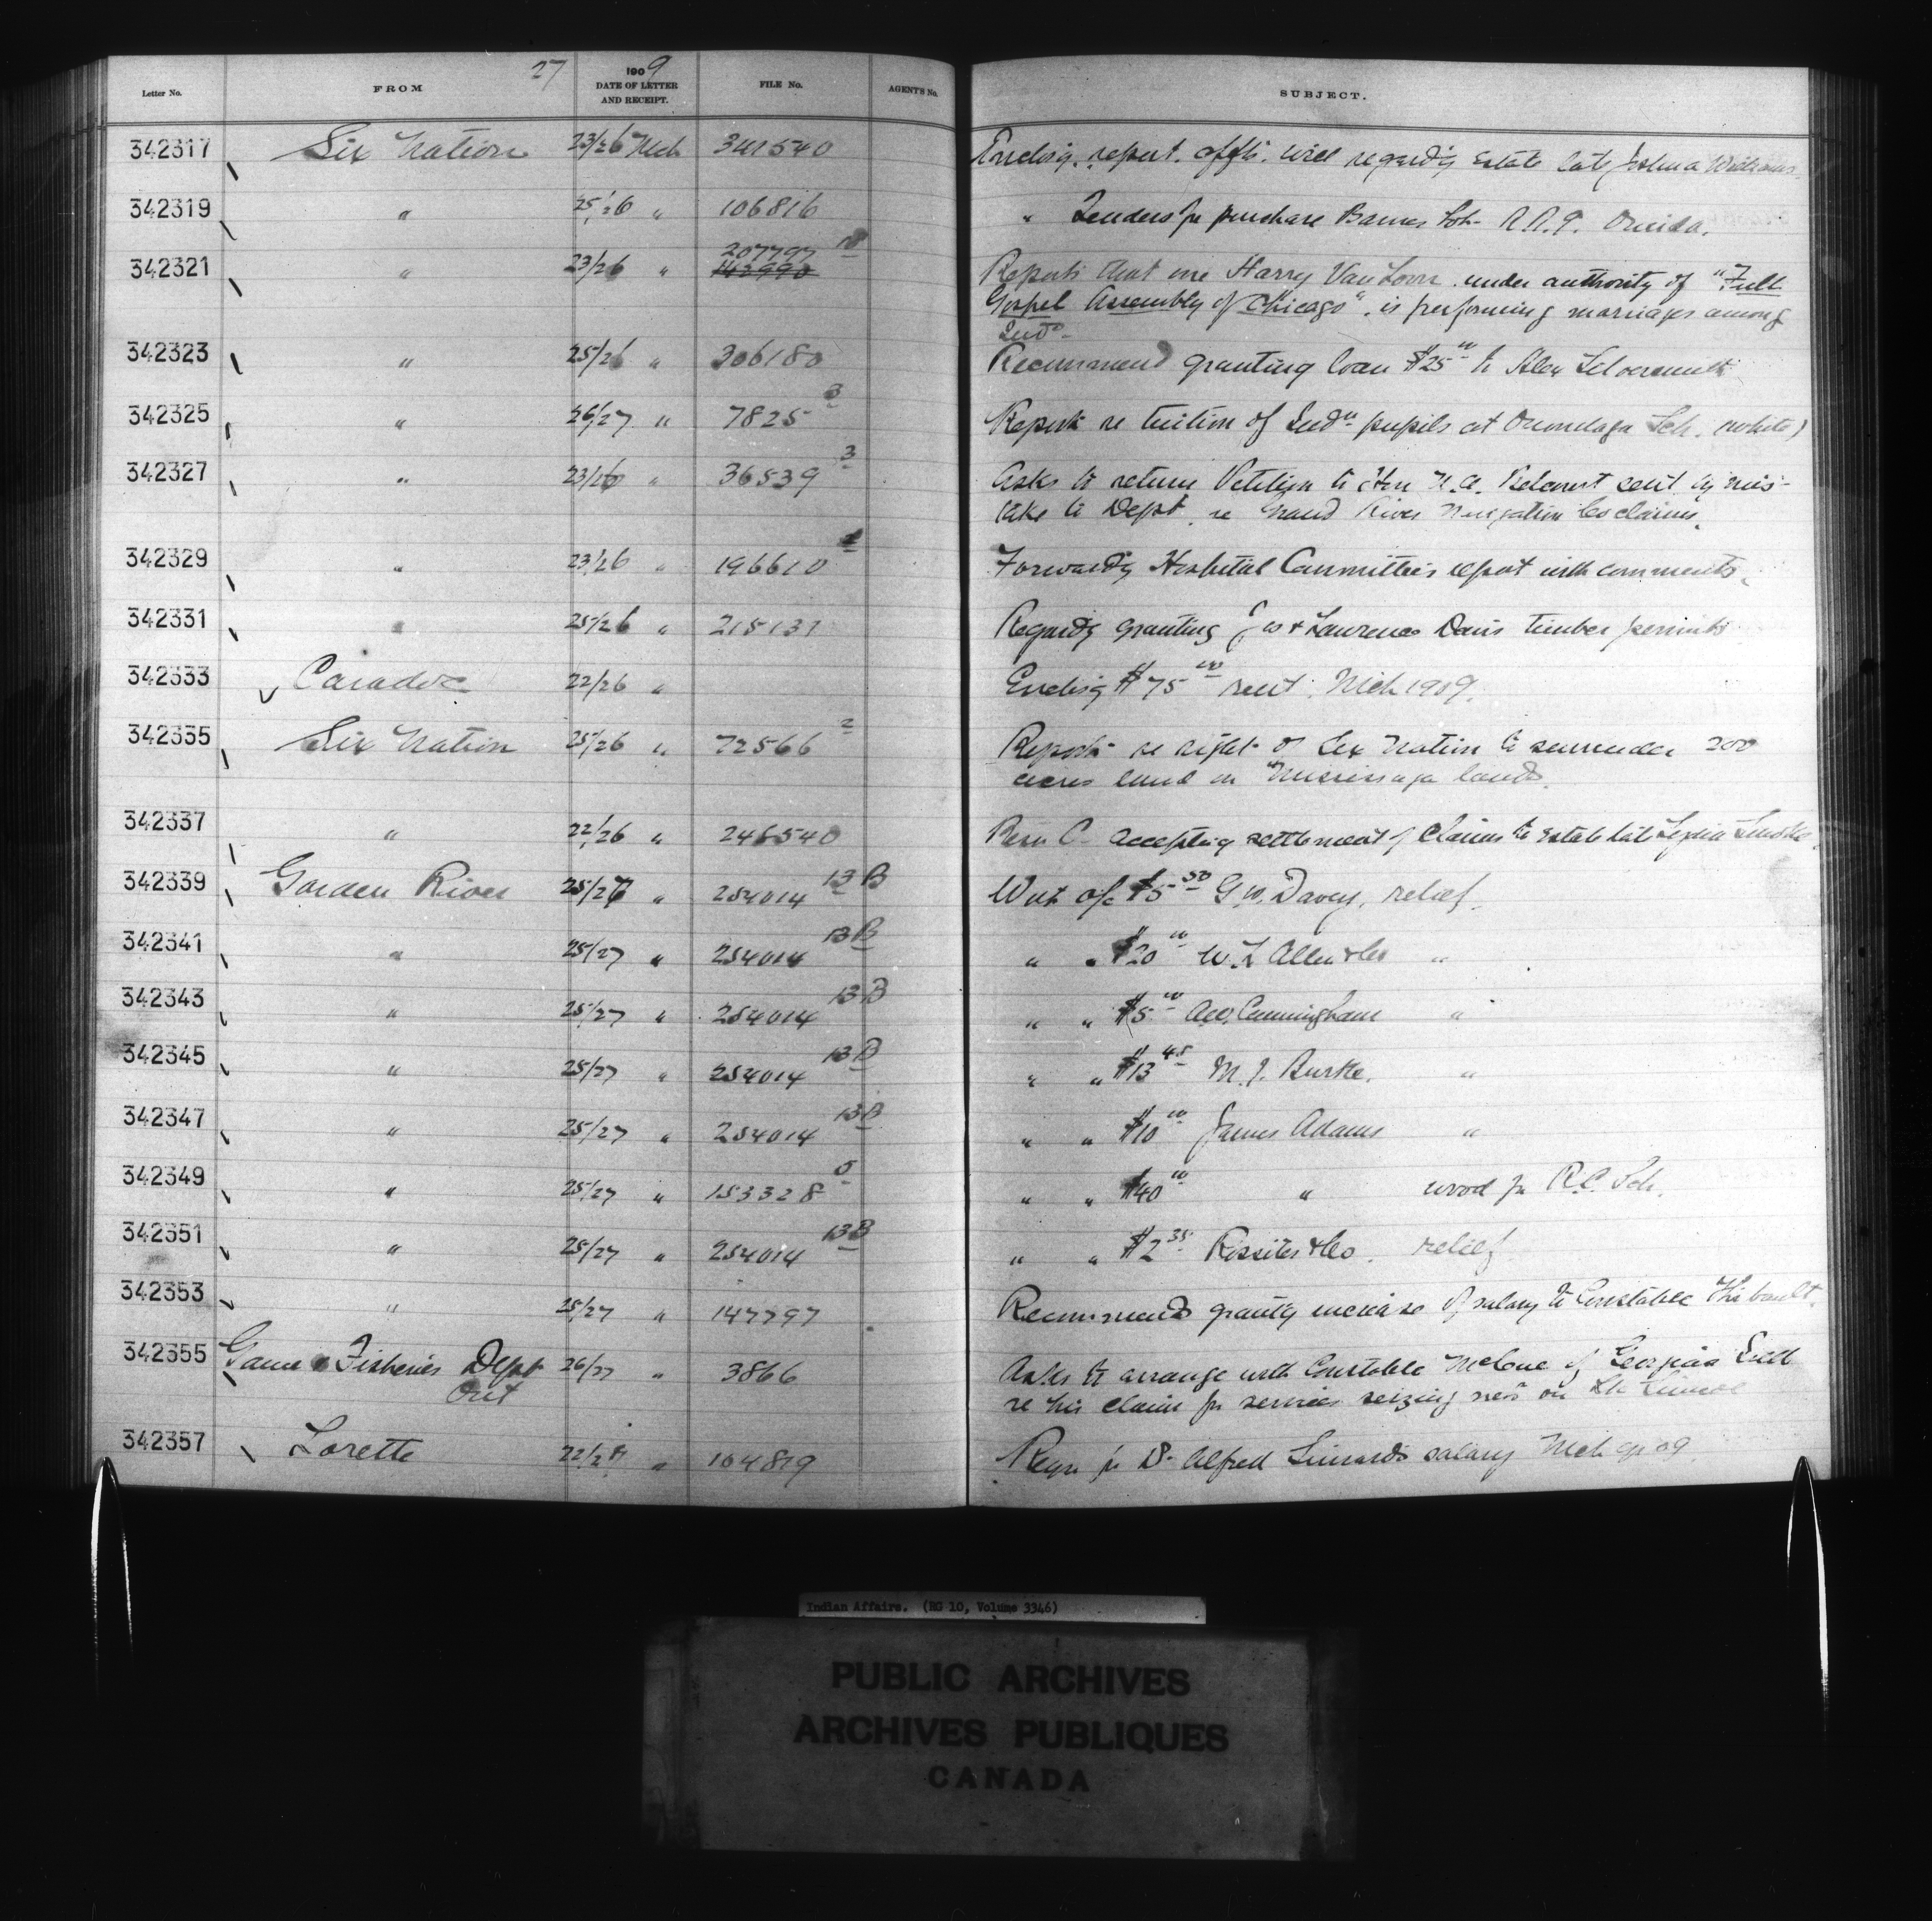 27
Letter No. FROM 1909 DATE OF LETTER AND RECEIPT. FILE No. AGENT'S No. SUBJECT.
342317 Six Nation 23/26 Mch 341540 Enclosg. report. affts. will regardg Estate late Joshua Williams
342319 " 25/26 " 106816 " Tenders for purchase Barnes lot R.R.P. Oneida.
342321 " 23/26 " 207797 142990 Reports that one Harry Van Loon under authority of "Full
Gospel Assembly of Chicago", is performing marriages among
Inds.
342323 " 25/26 " 306180 Recommend granting loan $25 00 to Alex
342325 " 26/27 " 7825 3 Reports re tuition of Indn pupils at Onondaga Sch. (white)
342327 " 23/26 " 36539 3 Asks to return Petition to Hon N.A. Belcourt sent by mis-
take to Dept re Grand River Navigation Co claims.
342329 " 23/26 " 196610 Forwardg Hospital Committee's report with comments.
342331 " 25/26 " 215131 Regardg granting Jos & Lawrence Davis timber permits
342333 Caradoc 22/26 " Enclosg $75 00 rent. Mch 1909.
342335 Six Nation 25/26 " 72566 2 Reports re right of Six Nation to surrender 200
acres land in Mississaga lands.
342337 " 22/26 " 246540 accepting settlement of claims to Estate late Lydia Smoke.
342339 Garden River 25/27 " 254014 13B Wut a/c $5 50 G.W. Davey, relief.
342341 " 25/27 " 254014 13B " " $20 00 W.L Allen & Co "
342343 " 25/27 " 254014 13B " " $5 00 Cunningham "
342345 " 25/27 " 254014 13B " " $13 45 M.J. Burke. "
342347 " 25/27 " 254014 13B " " $10 00 James Adams "
342349 " 25/27 " 153328 5 " " $40 00 " wood for R.C. Sch.
342351 " 25/27 " 254014 13B " " $2 35 Rossiter & Co. relief
342353 " 25/27 " 147797 Recommends grantg increase of salary to Constable Thibault.
342355 Game & Fisheries Dept 26/27 " 3866 Asks to arrange with Constable of Georgina Isld
Ont re his claim for services seizing nets on Lk Simcoe
342357 Lorette 22/27 " 104819 Reqn for Dr Alfred salary Mch qr 09.
Indian Affairs. (RG 10, Volume 3346)
PUBLIC ARCHIVES
ARCHIVES PUBLIQUES
CANADA